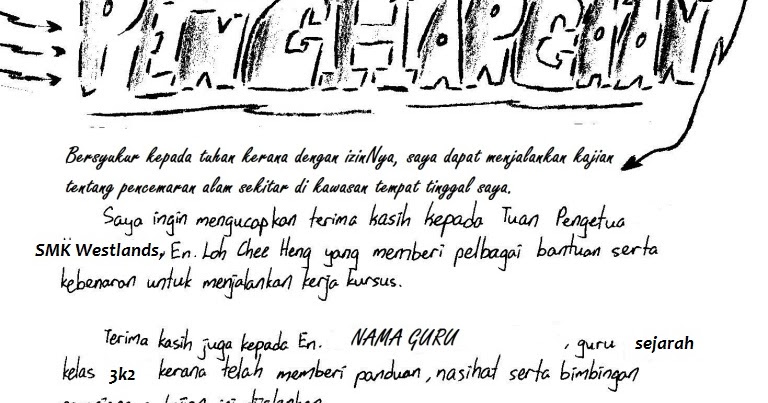 PENGHARGAAN
Bersyukur kepada tuhan kerana dengan izinNya, saya dapat menjalankan kajian
tentang pencemaran alam sekitar di kawasan tempat tinggal saya.
Saya ingin mengucapkan terima kasih kepada Tuan Pengetua
SMK Westlands, En. Loh Chee Heng yang memberi pelbagai bantuan serta
kebenaran untuk menjalankan kerja kursus.
Terima kasih juga kepada En. NAMA GURU , guru sejarah
kelas 3k2 kerana telah memberi panduan, nasihat serta bimbingan